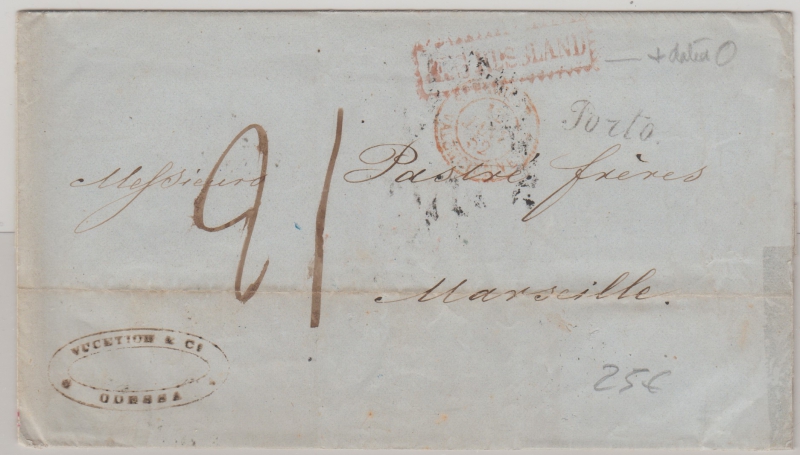 + dated
Porto
Messieurs Pastré frères
21
Marseille.
VUCETICH & Cⁱ
ODESSA
25€